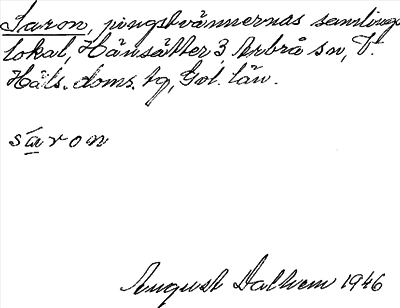 Saron, pingstvännernas samlings
lokal, Hänsätter 3, Arbrå sn, V.
Häls. doms. tg, Gvl. län.
sāron
August Dalhem 1946